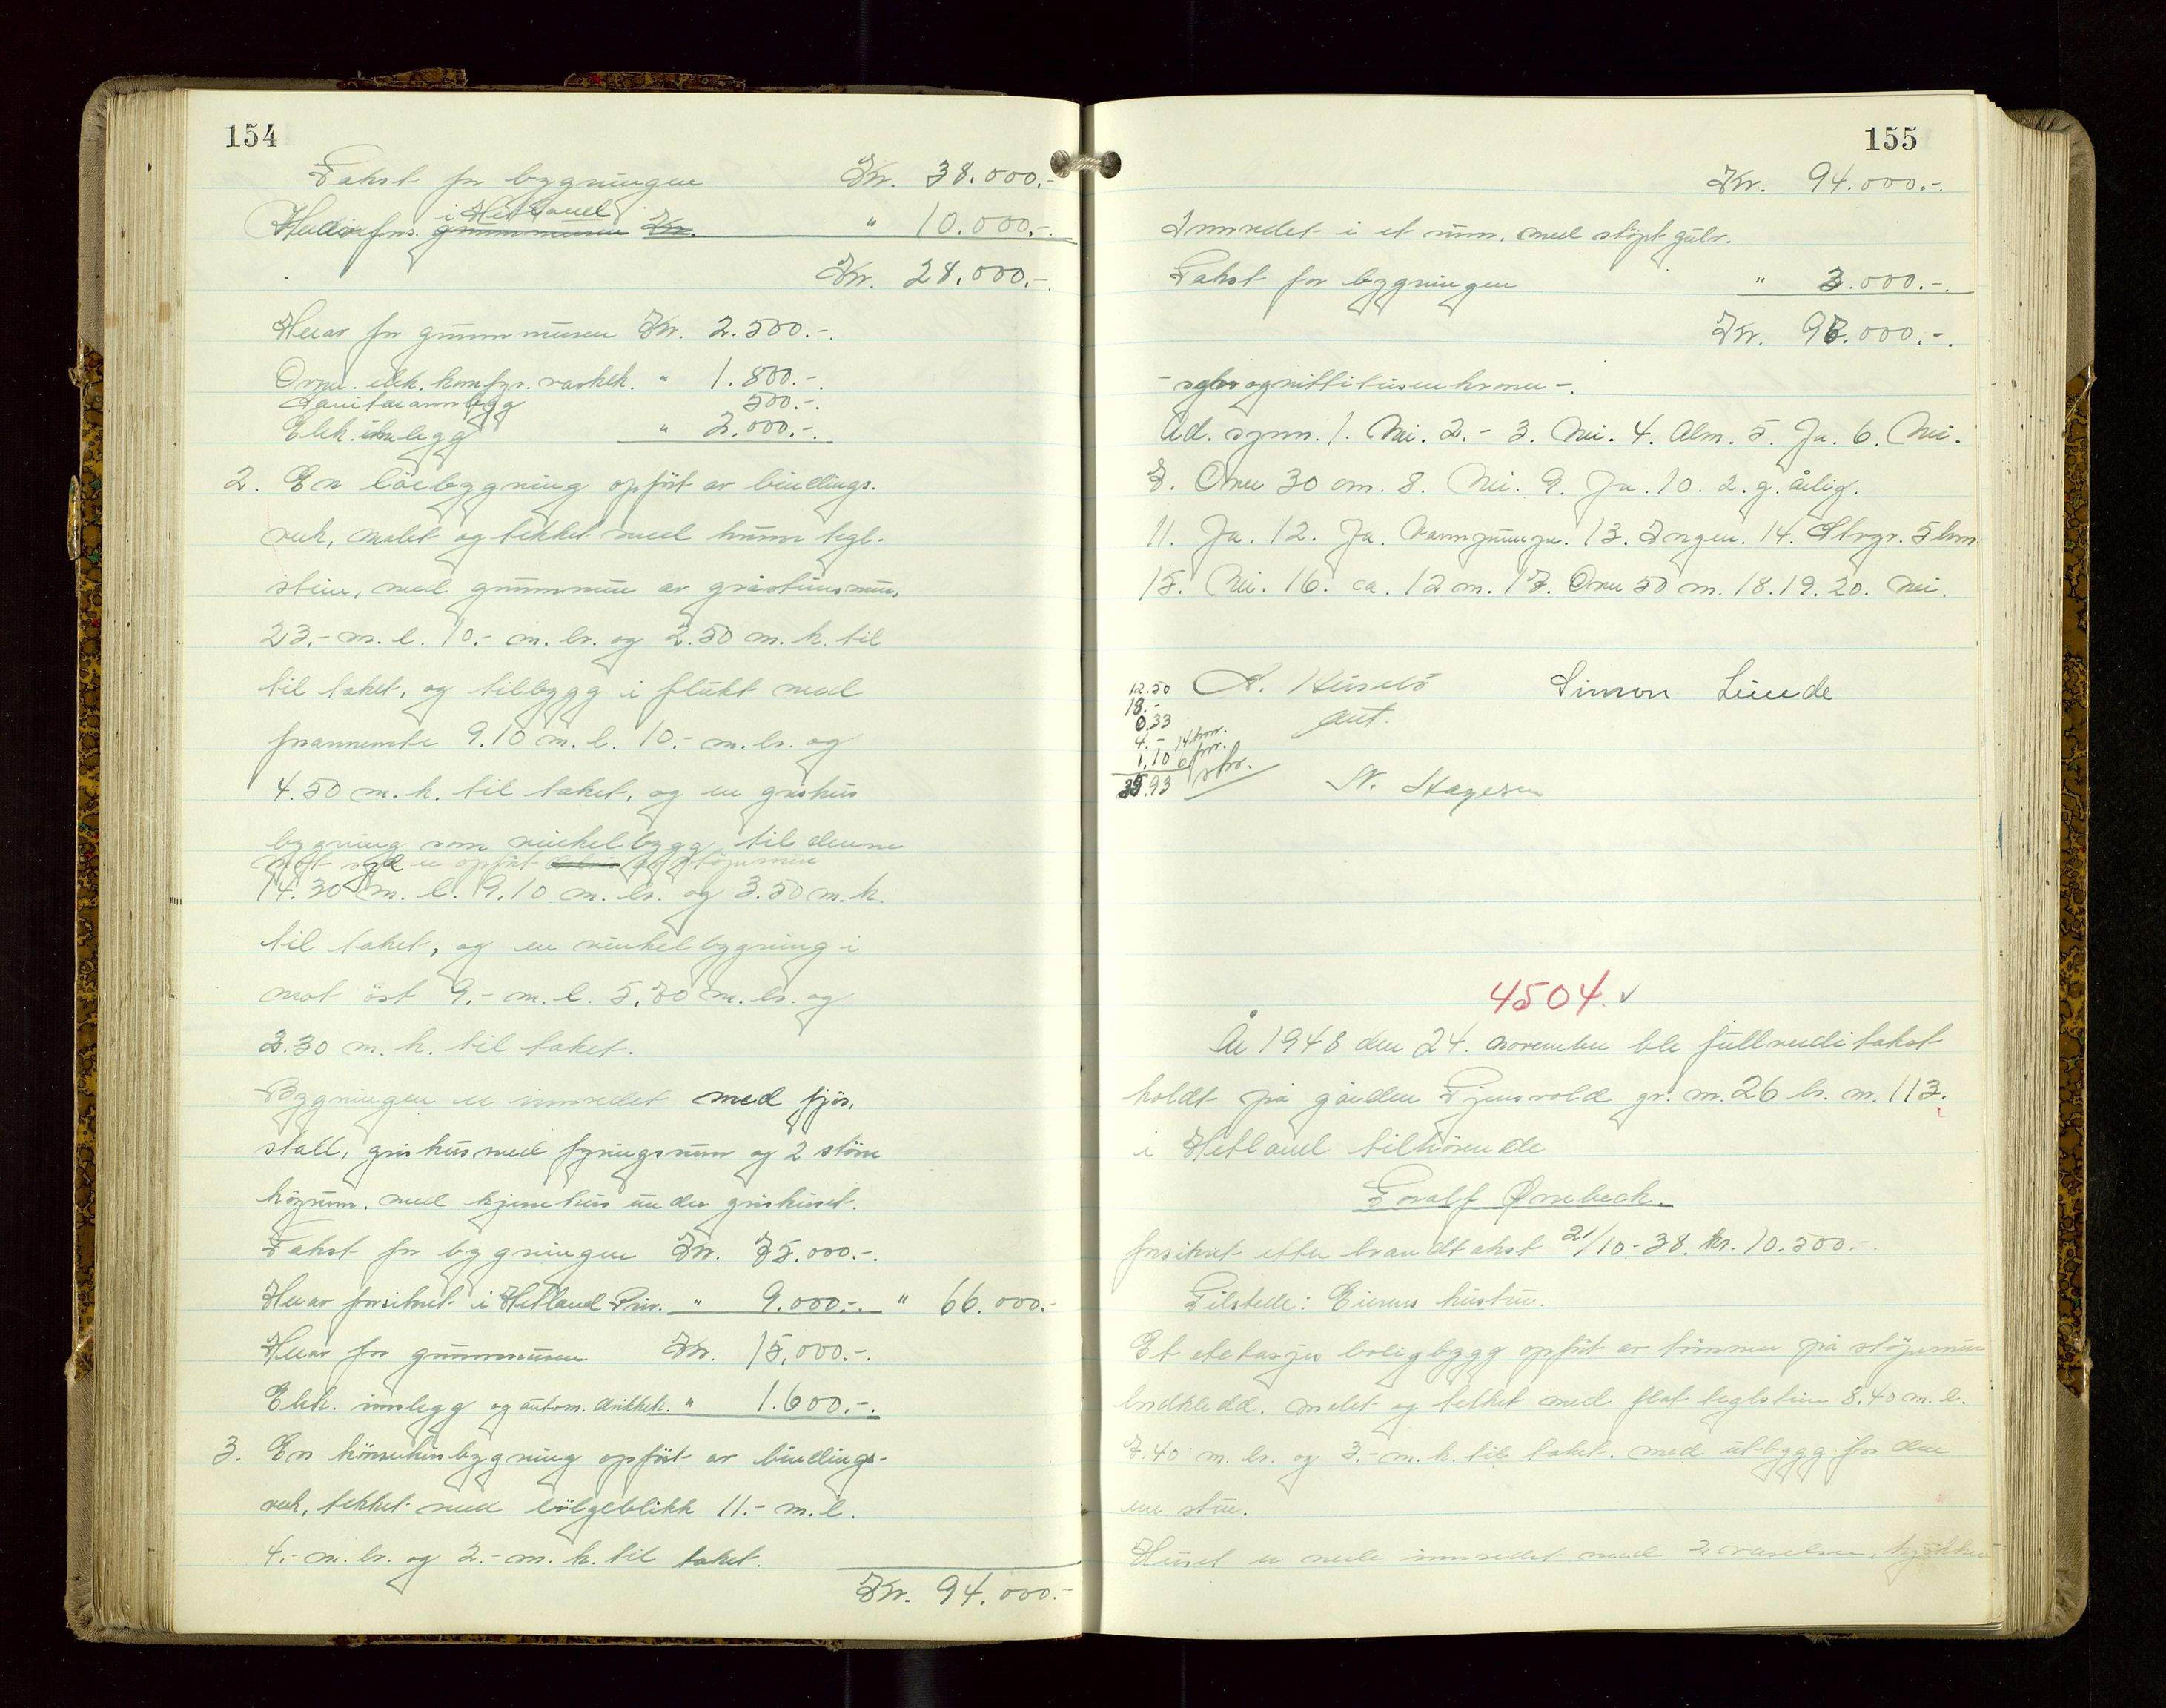 154
Takst for bygningen Kr. 38.000.-
Herav fors. i Hetland grunnmuren Kr. " 10.000.-
Kr. 28.000.-
Herav for grunnmuren Kr. 2.500.-.
Ovner. elek. komfyr. vaskek. " 1.800.-.
Sanitæranlegg 500.-.
Elek. innlegg " 2.000.-.
2. En löebygning opfört av bindings-
verk, malet og tekket med krum tegl-
stein, med grunnmur av gråsteinsmur,
23.- m. l. 10.- m. br. og 2.50 m. h. til
til taket, og tilbygg i flukt med
forannevnte 9.10 m. l. 10.- m. br. og
4.50 m. h. til taket, og en grishus
bygning som vinkelbygg til denne
mot syd er opfört av stöpemur
14.30 m. l. 9.10 m. br. og 3.50 m. h.
til taket, og en vinkelbygning i
mot öst 9.- m. l. 5.70 m. br. og
3.30 m. h. til taket.
Bygningen er innredet med fjös,
stall, grishus med fyringsrum og 2 större
höyrum. med kjörehus under grishuset.
Takst for bygningen Kr. 75.000.-.
Herav forsikret i Hetland Priv. " 9.000.-. " 66.000.-
Herav for grunnmuren Kr. 15.000.-.
Elek. innlegg og autom. drikkek. " 1.600.-.
3. En hönsehusbygning opfört av bindings-
verk, tekket med bölgeblikk 11.- m. l.
4.- m. br. og 2.- m. h. til taket.
Kr. 94.000.-
155
Kr. 94.000.-.
Innredet i et rum, med stöpt gulv.
Takst for bygningen " 3.000.-.
Kr. 97.000.-.
- syv og nitti tusen kroner -.
Ad. spm. 1. Nei. 2. - 3. Nei. 4. Alm. 5. Ja. 6. Nei.
7. Over 30 cm. 8. Nei. 9. Ja. 10. 2. g. årlig.
11. Ja. 12. Ja. Vannpumpe. 13. Ingen. 14. Stvgr. 5 km.
15. Nei. 16. ca. 12 m. 17. Over 50 m. 18. 19. 20. Nei.
12.50
18.-
0.33
4.- 14 km.
1.10
35.93
Husebö Simon Lunde
ant.
N. Hagesen
4504.
År 1948 den 24. november ble fullverditakst
holdt på gården Tjensvold gr. nr. 26 br. nr. 113.
i Hetland tilhörende
Toralf Ørsebeck.
forsikret etter branntakst 21/10-38. kr. 10.500.-
Tilstede: Eierens hustru.
Et etetasjes boligbygg opfört av tömmer på stöpemur
bordkledd. malet og tekket med flat teglstein 8.40 m. l.
7.40 m. br. og 3.- m. h. til taket. med utbygg for den
ene stue.
Huset er nede innredet med 2 værelser, kjökken